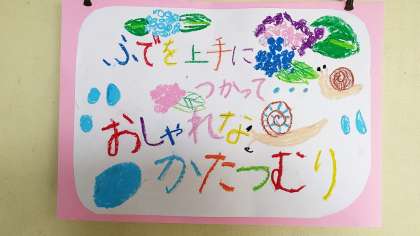 ふでを上手に
つかって・・・
おしゃれな
かたつむり